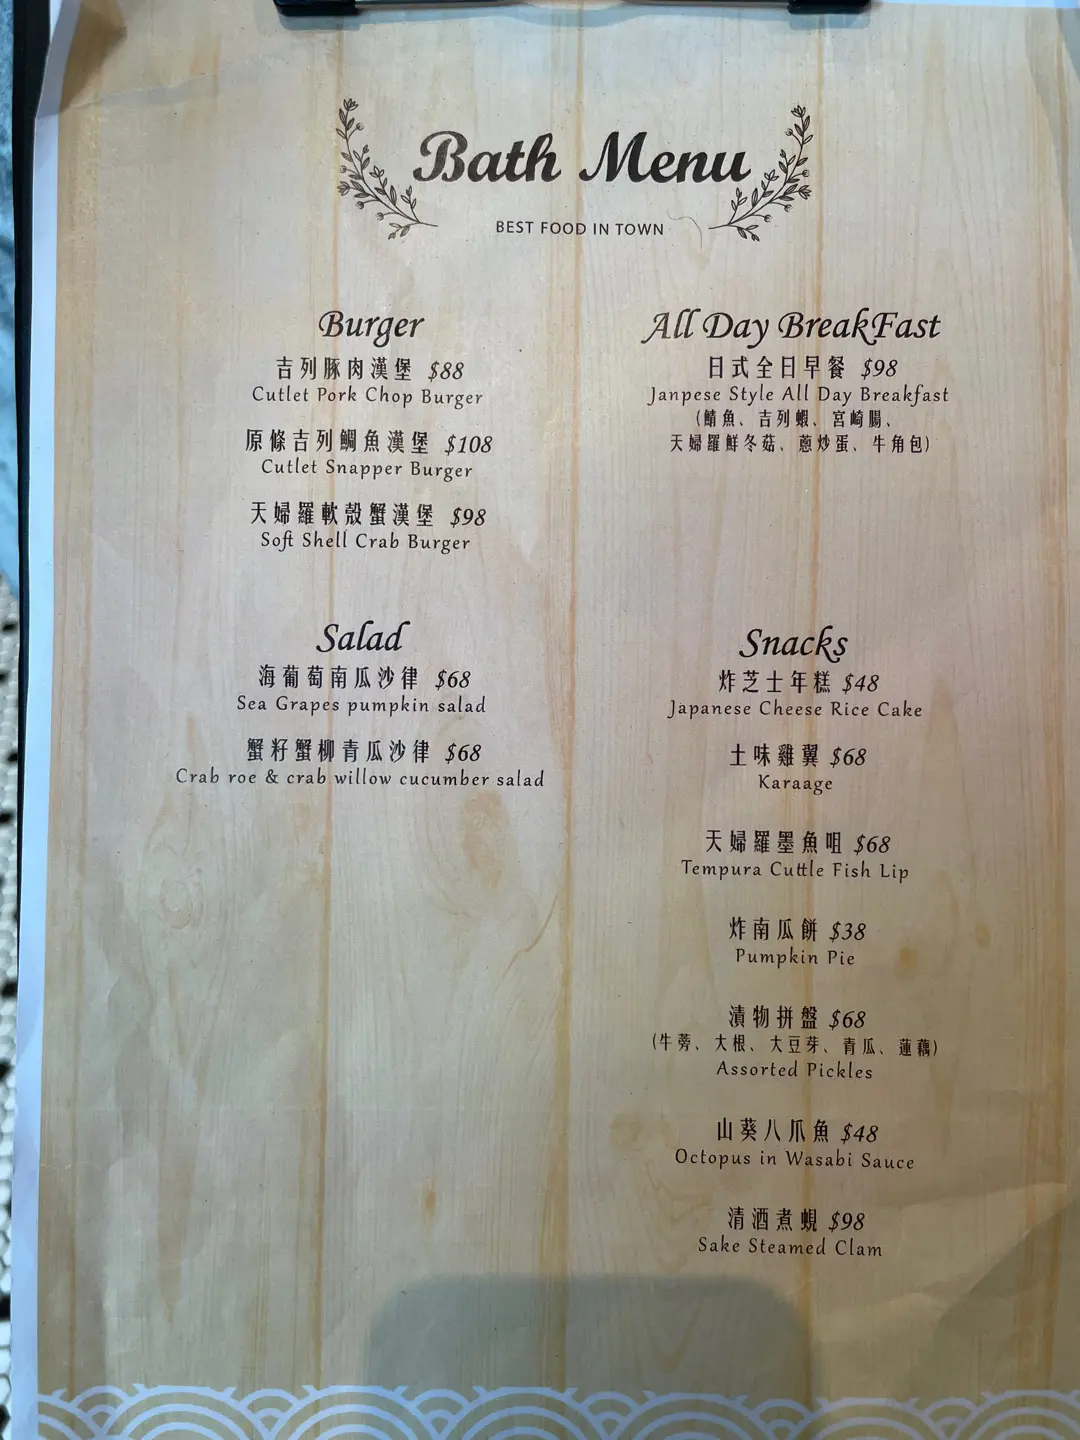 Bath Menu
BEST FOOD IN TOWN
Burger
吉列豚肉漢堡 $88
Cutlet Pork Chop Burger
原條吉列鯛魚漢堡 $108
Cutlet Snapper Burger
天婦羅軟殼蟹漢堡 $98
Soft Shell Crab Burger
All Day BreakFast
日式全日早餐 $98
Janpese Style All Day Breakfast
(鯖魚、吉列蝦、宮崎腸、
天婦羅鮮冬菇、蔥炒蛋、牛角包)
Salad
海葡萄南瓜沙律 $68
Sea Grapes pumpkin salad
蟹籽蟹柳青瓜沙律 $68
Crab roe & crab willow cucumber salad
Snacks
炸芝士年糕 $48
Japanese Cheese Rice Cake
土味雞翼 $68
Karaage
天婦羅墨魚咀 $68
Tempura Cuttle Fish Lip
炸南瓜餅 $38
Pumpkin Pie
漬物拼盤 $68
(牛蒡、大根、大豆芽、青瓜、蓮藕)
Assorted Pickles
山葵八爪魚 $48
Octopus in Wasabi Sauce
清酒煮蜆 $98
Sake Steamed Clam